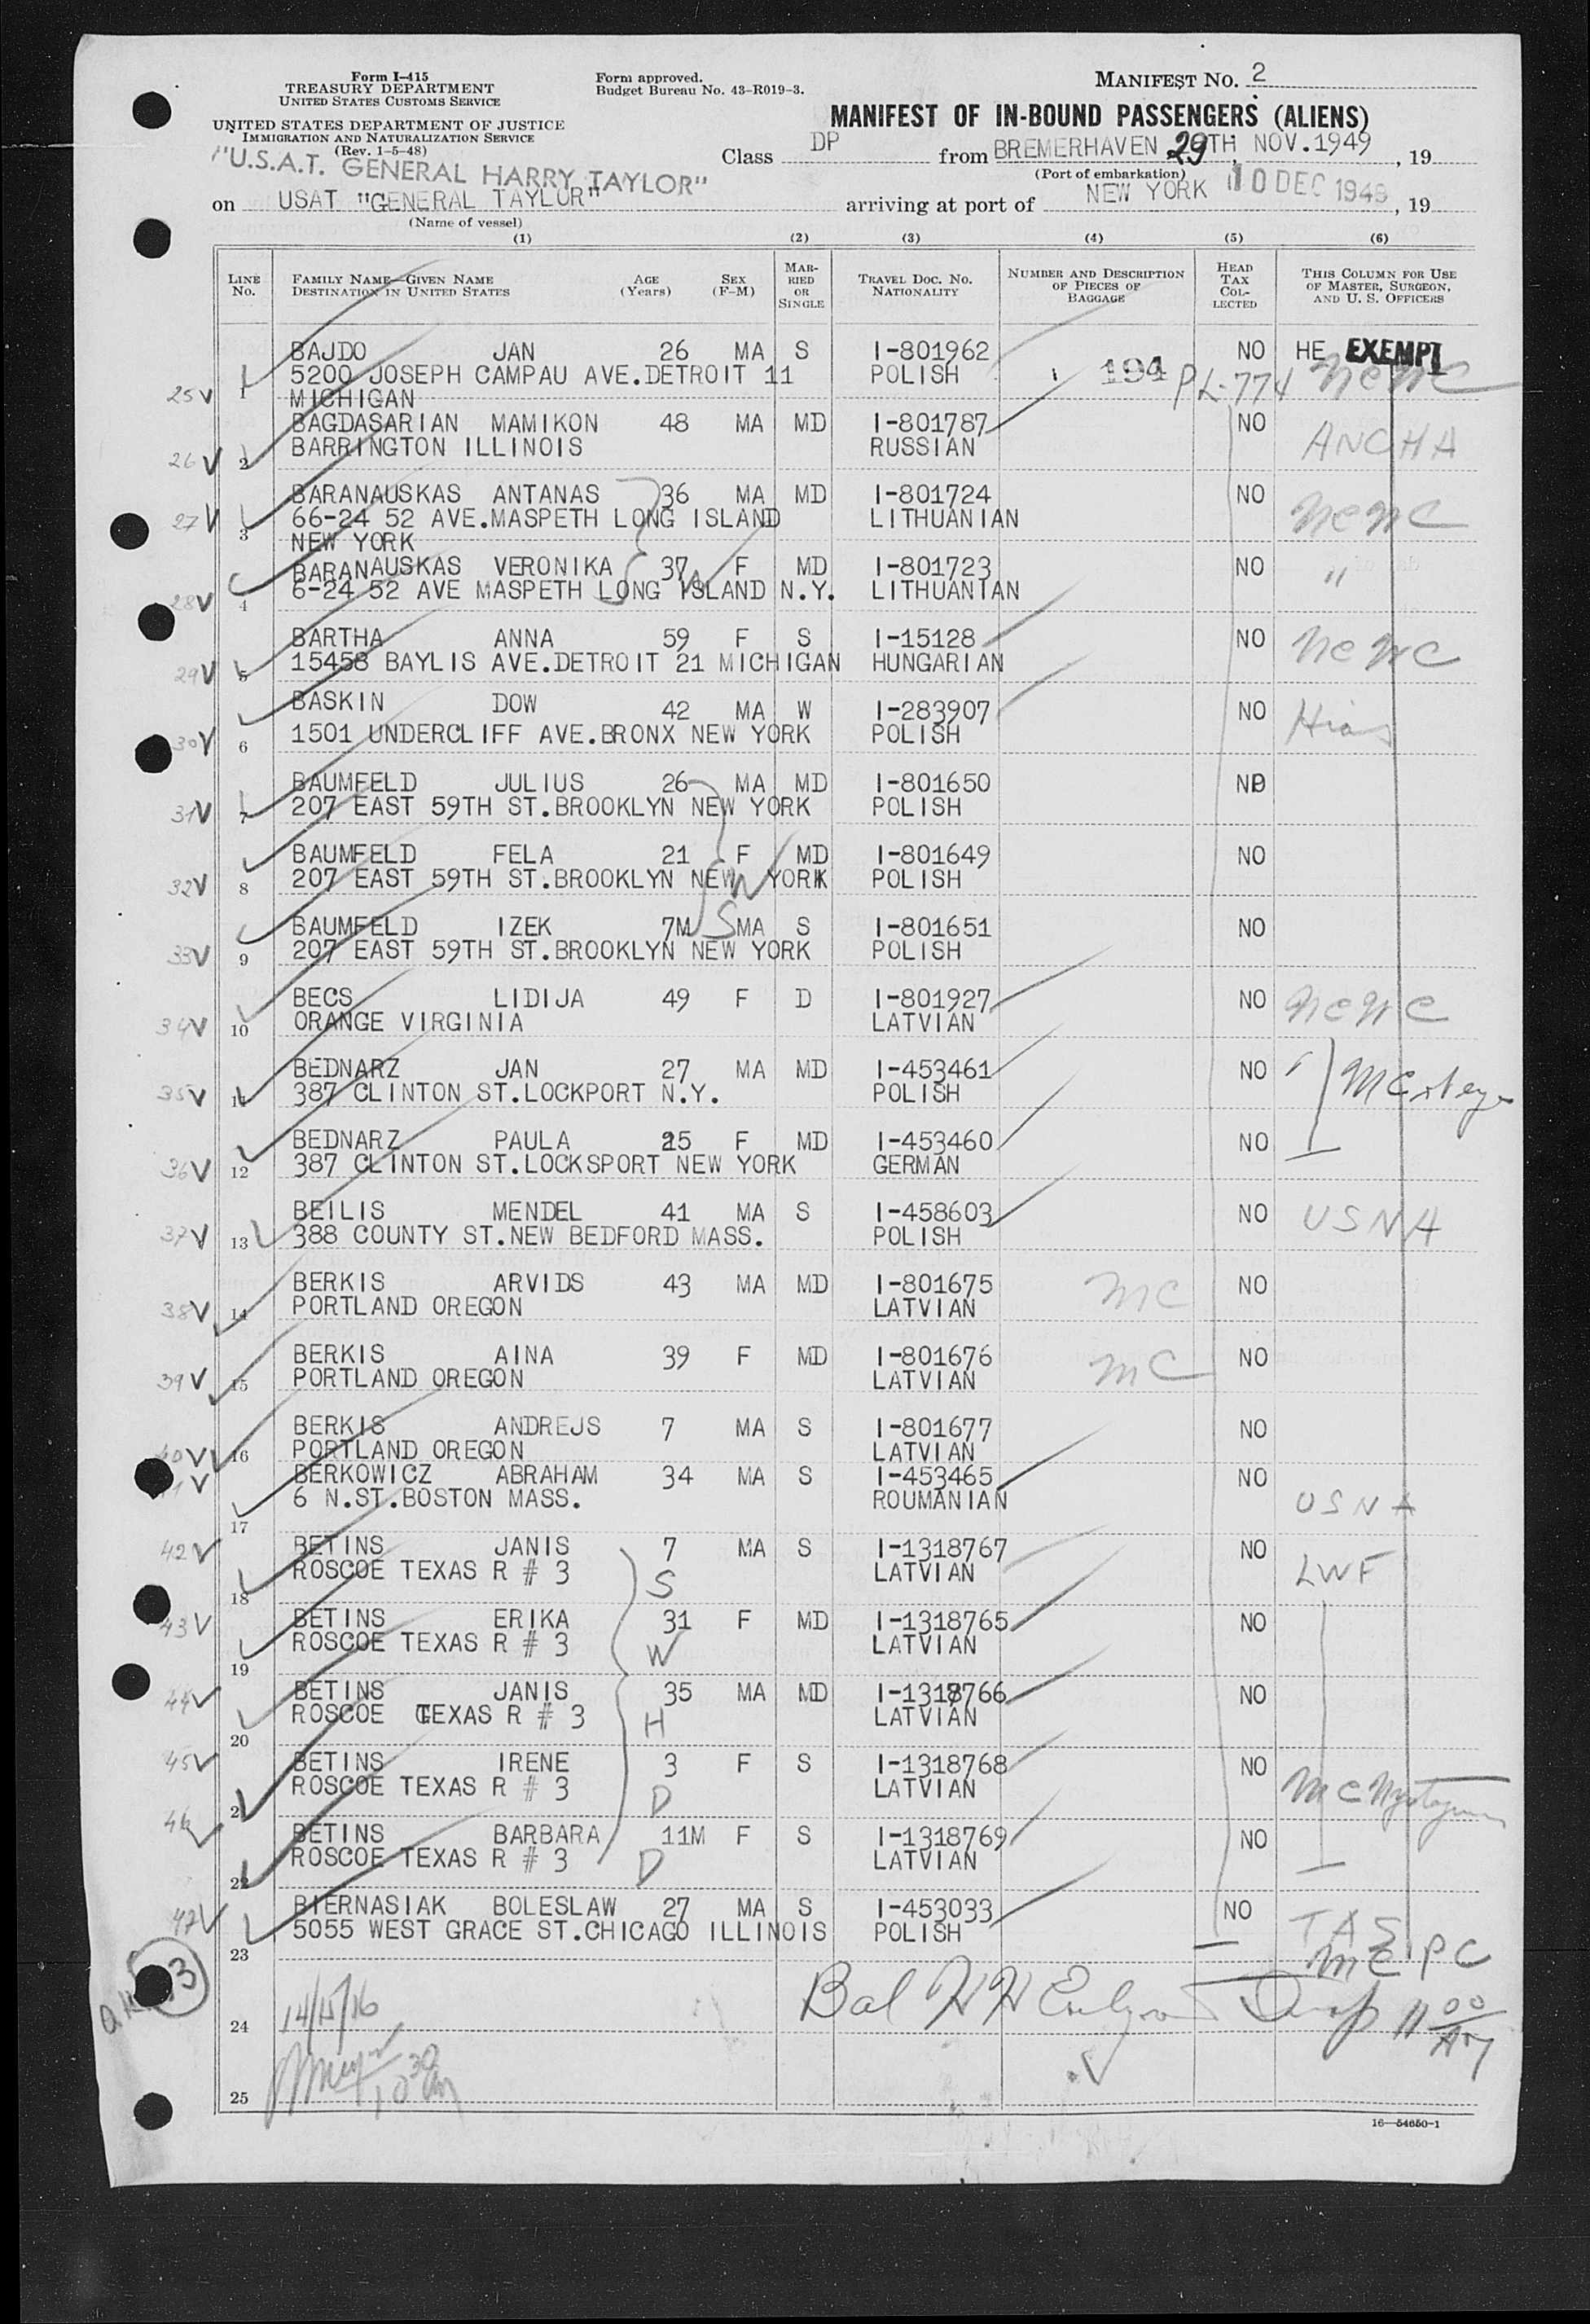 Form I-415
TREASURY DEPARTMENT
UNITED STATES CUSTOMS SERVICE
UNITED STATES DEPARTMENT OF JUSTICE
IMMIGRATION AND NATURALIZATION SERVICE
(Rev. 1-5-48)
Form approved.
Budget Bureau No. 43-R019-3.
MANIFEST NO. 2
MANIFEST OF IN-BOUND PASSENGERS (ALIENS)
Class DP from BREMERHAVEN 29TH NOV. 1949, 19
(Port of embarkation)
"U.S.A.T. GENERAL HARRY TAYLOR"
on USAT "GENERAL TAYLOR" arriving at port of NEW YORK 10 DEC 1949, 19
(Name of vessel)
(1) (2) (3) (4) (5) (6)
LINE NO.
FAMILY NAME—GIVEN NAME
DESTINATION IN UNITED STATES
AGE (Years)
SEX (F-M)
MARRIED OR SINGLE
TRAVEL DOC. NO. NATIONALITY
NUMBER AND DESCRIPTION OF PIECES OF BAGGAGE
HEAD TAX COLLECTED
THIS COLUMN FOR USE OF MASTER, SURGEON, AND U. S. OFFICERS
BAJDO JAN 26 MA S I-801962 NO HE EXEMPT
25 1 5200 JOSEPH CAMPAU AVE.DETROIT 11 POLISH 194 PL-774 NCWC
MICHIGAN
BAGDASARIAN MAMIKON 48 MA MD I-801787 NO
26 2 BARRINGTON ILLINOIS RUSSIAN ANCHA
BARANAUSKAS ANTANAS 36 MA MD I-801724 NO
27 3 66-24 52 AVE.MASPETH LONG ISLAND LITHUANIAN NCWC
NEW YORK
BARANAUSKAS VERONIKA 37 F MD I-801723 NO "
28 4 6-24 52 AVE MASPETH LONG ISLAND N.Y. LITHUANIAN W
BARTHA ANNA 59 F S I-15128 NO
29 5 15458 BAYLIS AVE.DETROIT 21 MICHIGAN HUNGARIAN NCWC
BASKIN DOW 42 MA W I-283907 NO Hias
30 6 1501 UNDERCLIFF AVE.BRONX NEW YORK POLISH
BAUMFELD JULIUS 26 MA MD I-801650 NO
31 7 207 EAST 59TH ST.BROOKLYN NEW YORK POLISH
BAUMFELD FELA 21 F MD I-801649 NO
32 8 207 EAST 59TH ST.BROOKLYN NEW YORK POLISH W
BAUMFELD IZEK 7M S MA S I-801651 NO
33 9 207 EAST 59TH ST.BROOKLYN NEW YORK POLISH
BECS LIDIJA 49 F D I-801927 NO NCWC
34 10 ORANGE VIRGINIA LATVIAN
BEDNARZ JAN 27 MA MD I-453461 NO
35 11 387 CLINTON ST.LOCKPORT N.Y. POLISH
BEDNARZ PAULA 25 F MD I-453460 NO
36 12 387 CLINTON ST.LOCKSPORT NEW YORK GERMAN
BEILIS MENDEL 41 MA S I-458603 NO USNA
37 13 388 COUNTY ST.NEW BEDFORD MASS. POLISH
BERKIS ARVIDS 43 MA MD I-801675 MC NO
38 14 PORTLAND OREGON LATVIAN
BERKIS AINA 39 F MD I-801676 MC NO
39 15 PORTLAND OREGON LATVIAN
BERKIS ANDREJS 7 MA S I-801677 NO
40 16 PORTLAND OREGON LATVIAN
BERKOWICZ ABRAHAM 34 MA S I-453465 NO
6 N.ST.BOSTON MASS. ROUMANIAN USNA
17
42 BETINS JANIS 7 MA S I-1318767 NO
ROSCOE TEXAS R # 3 S LATVIAN LWF
18
43 BETINS ERIKA 31 F MD I-1318765 NO
ROSCOE TEXAS R # 3 W LATVIAN
19
44 BETINS JANIS 35 MA MD I-1318766 NO
ROSCOE TEXAS R # 3 H LATVIAN
20
45 BETINS IRENE 3 F S I-1318768 NO
ROSCOE TEXAS R # 3 D LATVIAN
21
46 BETINS BARBARA 11M F S I-1318769 NO
ROSCOE TEXAS R # 3 D LATVIAN
22
47 BIERNASIAK BOLESLAW 27 MA S I-453033 NO
5055 WEST GRACE ST.CHICAGO ILLINOIS POLISH
23
24
25
16—54650-1